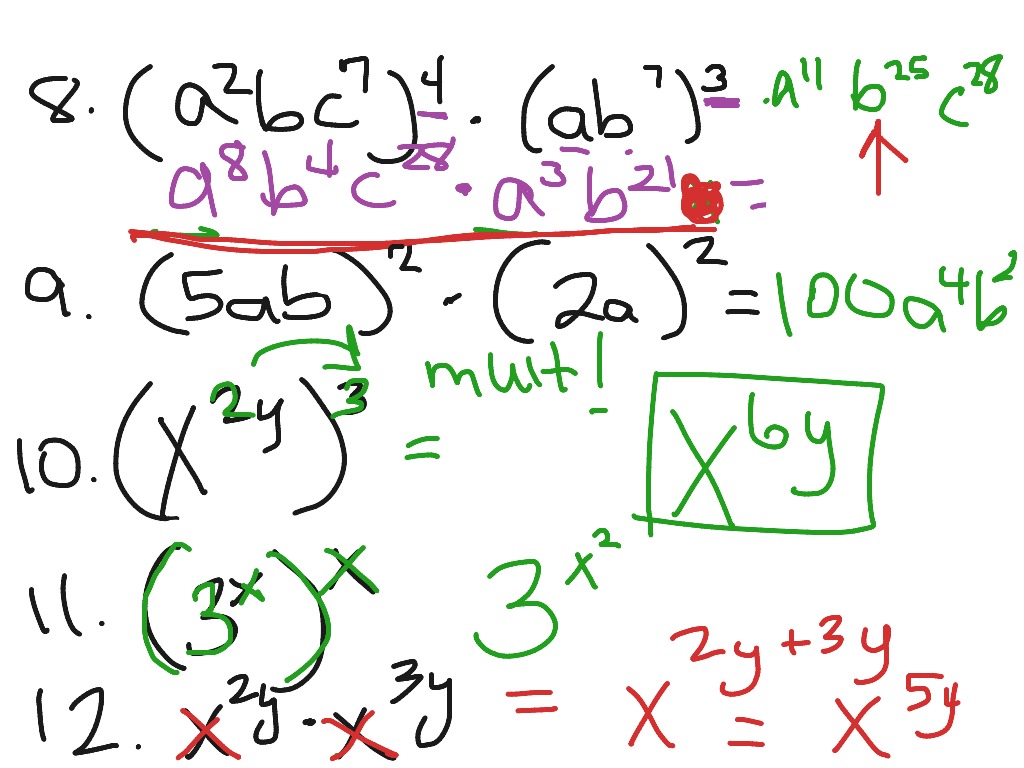 8. (a²bc⁷)⁴ · (ab⁷)³ = · a¹¹ b²⁵ c²⁸
a⁸b⁴c²⁸ · a³b²¹ =
9. (5ab)² · (2a)² = 100a⁴b²
mult!
10. (x²ʸ)³ = x⁶ʸ
11. (3ˣ)ˣ 3^x²
12. x²ʸ · x³ʸ = x²ʸ⁺³ʸ = x⁵ʸ